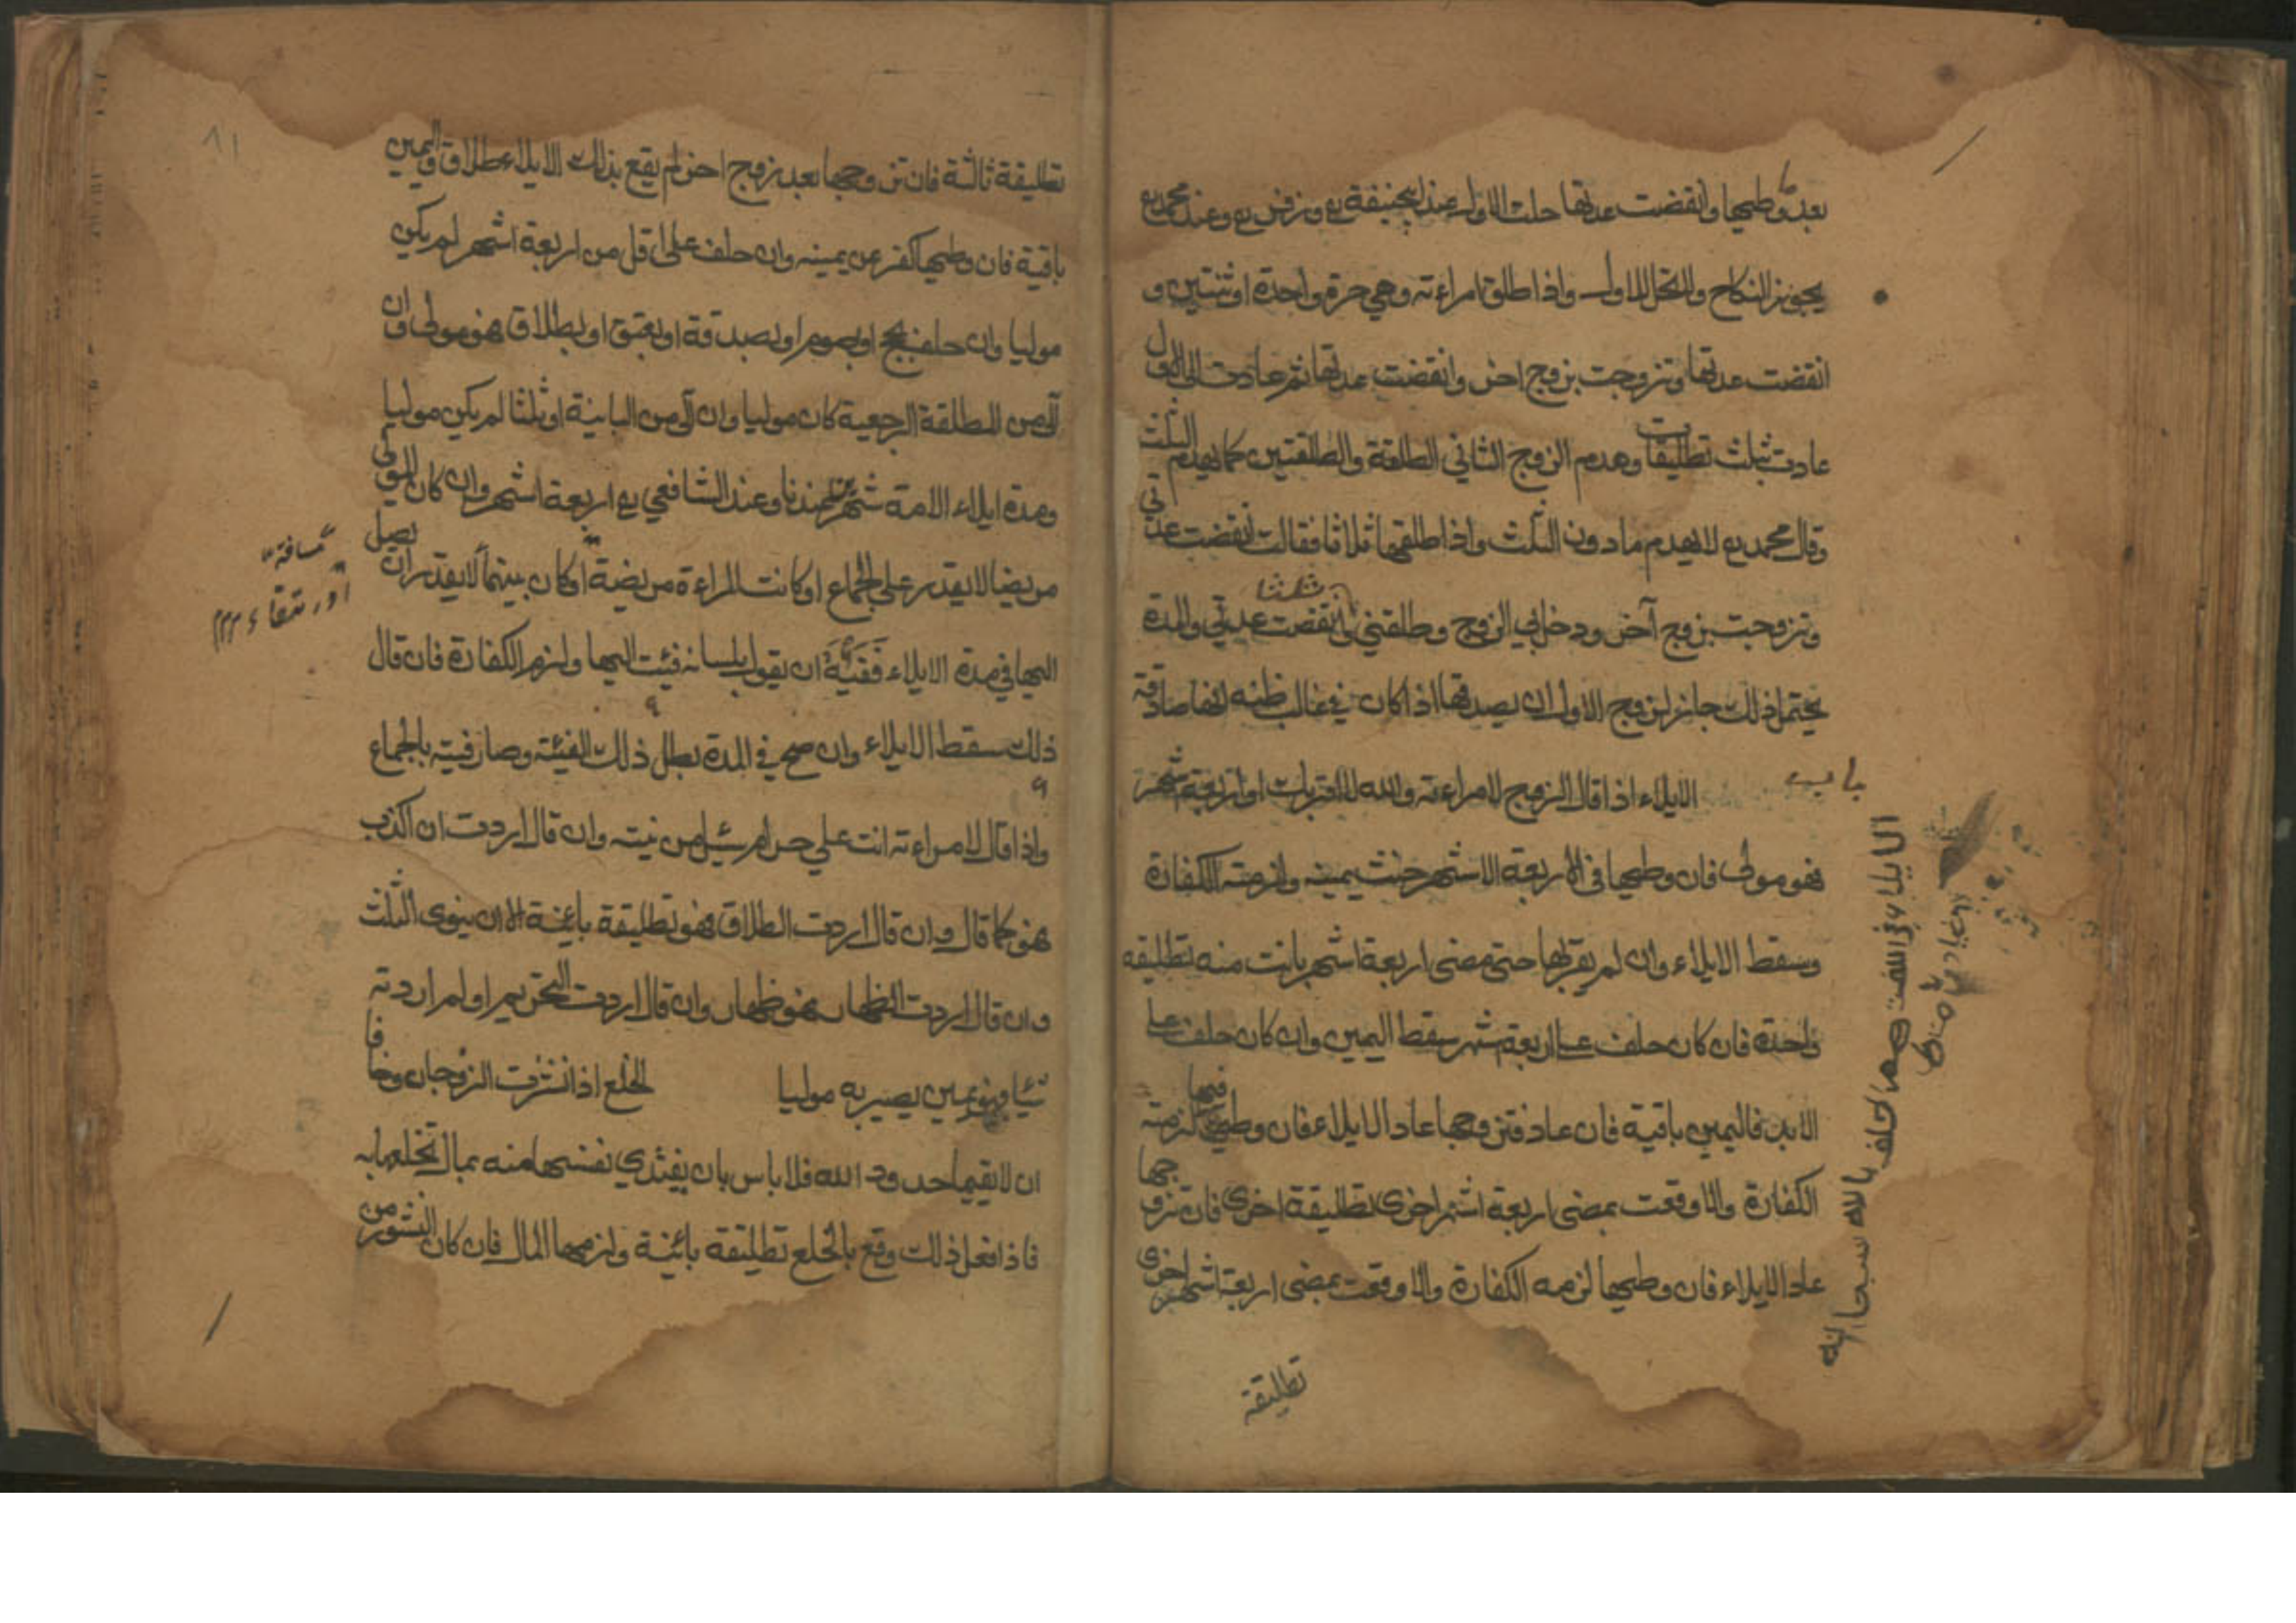 بعد وطيها وانقضت عدتها حلت للاول عند ابيحنيفة رح وزفر رح وعند محمد رح
يجوز النكاح ولا تحل للاول واذا طلق امراءته وهي حرة واحدة او ثنتين و
انقضت عدتها وتزوجت بزوج اخر وانقضت عدتها ثم عادت الى الاول
عادت بثلث تطليقات وهدم الزوج الثاني الطلقة والطلقتين كما يهدم الثلث
وقال محمد رح لا يهدم ما دون الثلث واذا طلقها ثلاثا فقالت انقضت عدتي
وتزوجت بزوج آخر ودخل بي الزوج وطلقني وانقضت عدتي والمدة
ثلثا
يحتمل ذلك جاز لزوج الاول ان يصدقها اذا كان في غالب ظنه انها صادقة
باب الايلاء اذا قال الزوج لامراءته والله لا اقربك او اربعة شهر
فهو مولى فان وطيها في الاربعة الاشهر حنث يمينه ولزمته الكفارة
وسقط الايلاء وان لم يقربها حتى مضى اربعة اشهر بانت منه تطليقه
واحدة فان كان حلف على اربعة شهر سقط اليمين وان كان حلف على
الابد فاليمين باقية فان عاد فتزوجها عاد الايلاء فان وطيها فيها لزمته
الكفارة والا وقعت بمضي اربعة اشهر اخرى تطليقة اخرى فان تزوجها
عاد الايلاء فان وطيها لزمه الكفارة والا وقعت بمضى اربعة اشهر اخرى
تطليقة
الايلاء في اللغت هم الحلف بالله سبحانه
٨١
تطليقة ثالثة فان تزوجها بعد زوج اخر لم يقع بذلك الايلاء طلاق واليمين
باقية فان وطيها كفر عن يمينه وان حلف على اقل من اربعة اشهر لم يكن
موليا وان حلف بحج او بصوم او بصدقة او بعتق او بطلاق فهو مولى وان
آلى من المطلقة الرجعية كان موليا وان آلى من الباينة او ثلثا لم يكن موليا
ومدة ايلاء الامة شهران عندنا وعند الشافعي رح اربعة اشهر وان كان المولى
مريضا لا يقدر على الجماع او كانت المراءة مريضة او كان بينهما لا يقدر ان يصل
مسافة
اليها في مدة الايلاء ففيئه ان يقول بلسانه فئت اليها ولزم الكفارة فان قال
ذلك سقط الايلاء وان صح في المدة بطل ذلك الفيئة وصار فيئه بالجماع
واذا قال لامراءته انت علي حرام سئل من نيته وان قال اردت ان اكذب
فهو كما قال وان قال اردت الطلاق فهو تطليقة بائنة الا ان ينوى الثلث
وان قال اردت الظهار فهو ظهار وان قال اردت التحريم او لم ارد ته
شيا فهو يمين يصير به موليا الخلع اذا نشزت الزوجان وخافا
ان لا يقيما حدود الله فلا باس بان يفتدي نفسها منه بمال تخلعها به
فاذا فعل ذلك وقع بالخلع تطليقة بائنة ولزمها المال فان كان النشوز من